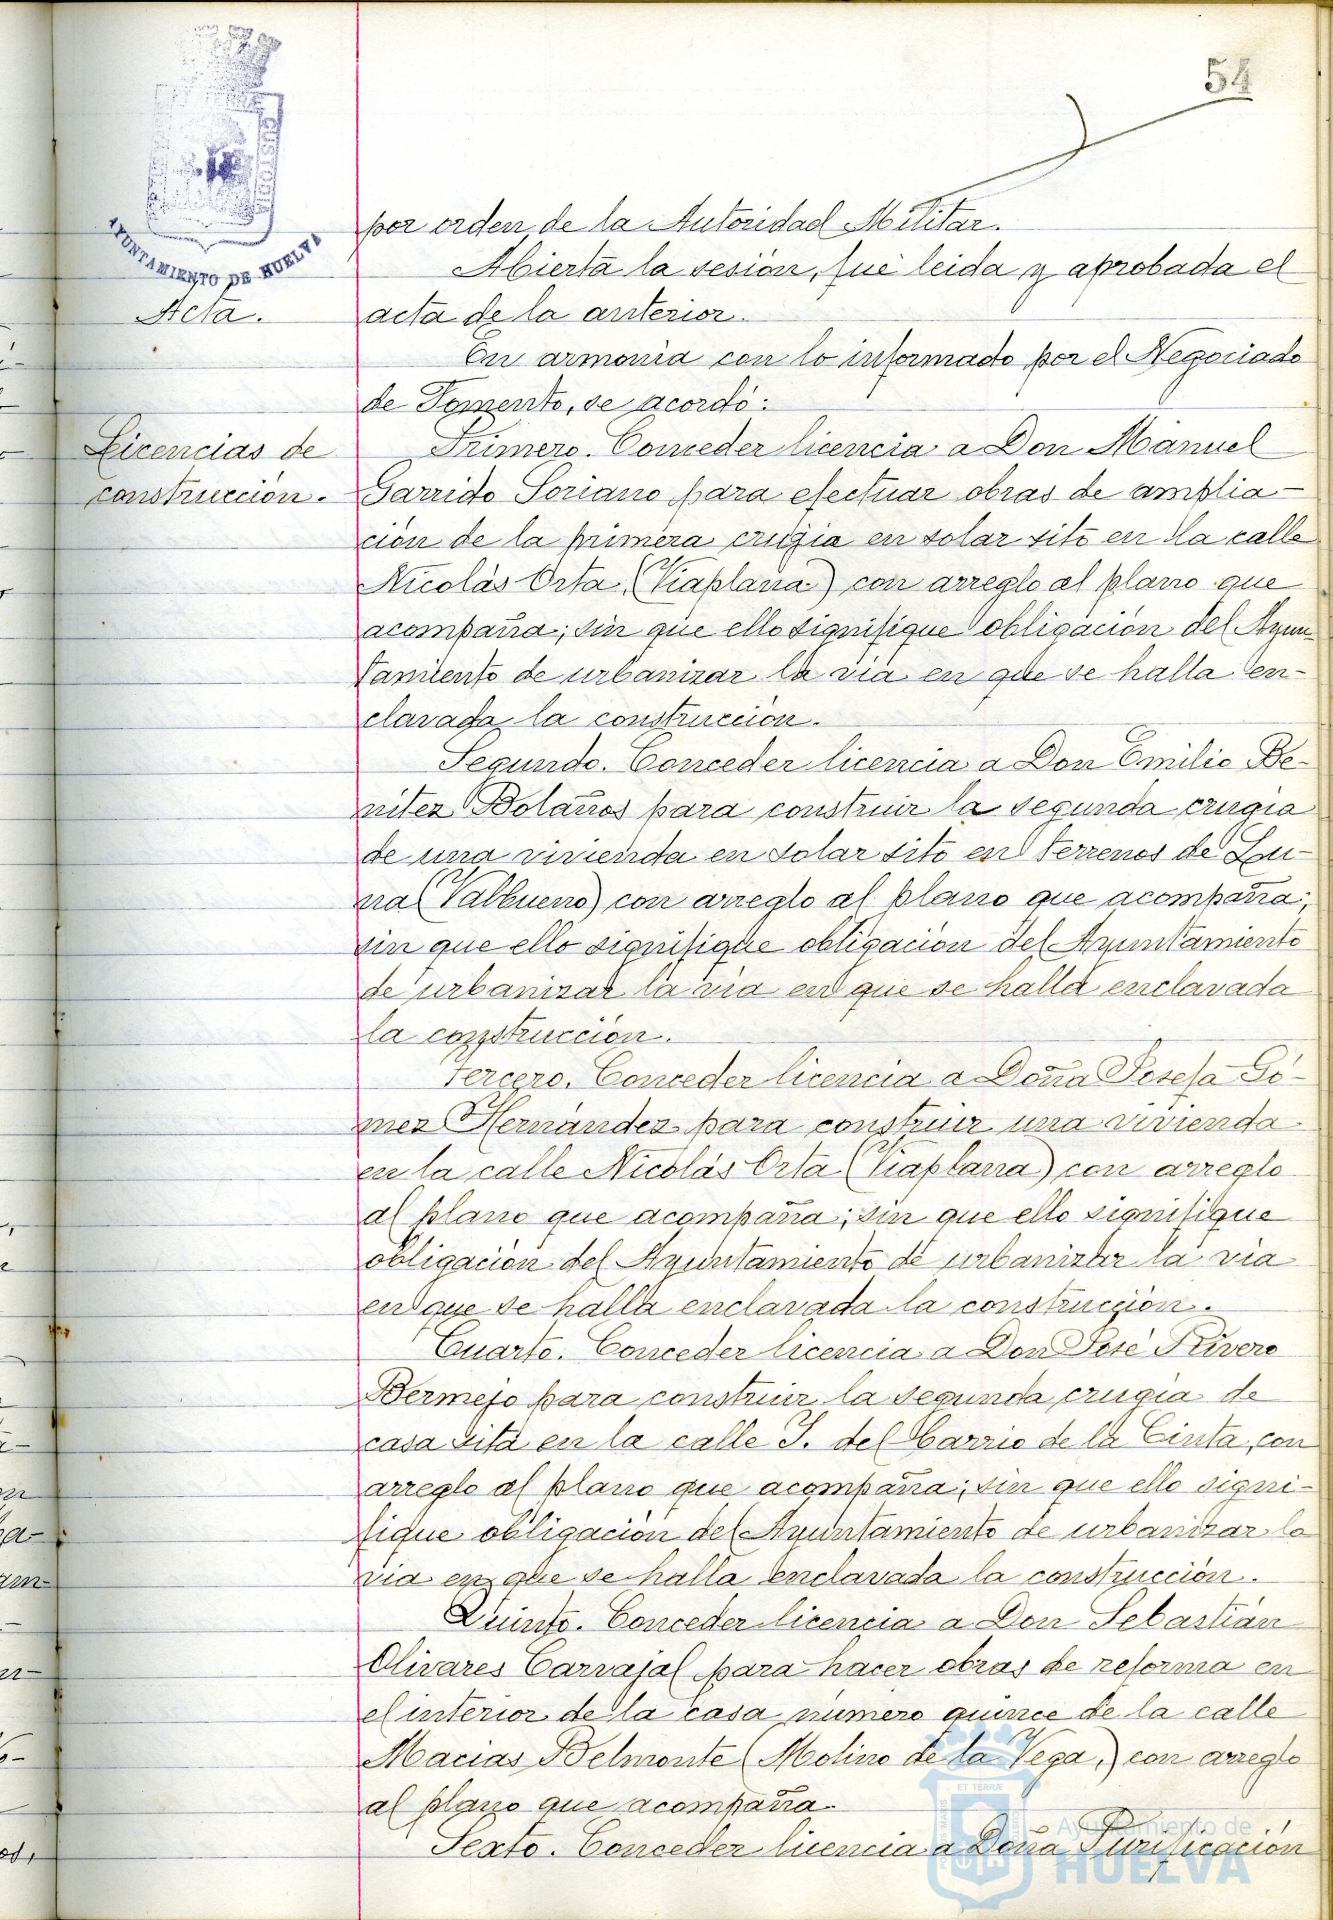 54
ET TERRÆ CUSTODIA
AYUNTAMIENTO DE HUELVA
por orden de la Autoridad Militar.
Abierta la sesión, fué leida y aprobada el
Acta.
acta de la anterior.
En armonia con lo informado por el Negociado
de Fomento, se acordó:
Licencias de
construcción.
Primero. Conceder licencia a Don Manuel
Garrido Soriano para efectuar obras de amplia-
ción de la primera crugia en solar sito en la calle
Nicolás Orta, (Viaplana) con arreglo al plano que
acompaña; sin que ello signifique obligación del Ayun-
tamiento de urbanizar la via en que se halla en-
clavada la construcción.
Segundo. Conceder licencia a Don Emilio Be-
nitez Bolaños para construir la segunda crugia
de una vivienda en solar sito en terrenos de Lu-
na (Valbueno) con arreglo al plano que acompaña;
sin que ello signifique obligación del Ayuntamiento
de urbanizar la via en que se halla enclavada
la construcción.
Tercero. Conceder licencia a Doña Josefa Gó-
mez Hernández para construir una vivienda
en la calle Nicolás Orta (Viaplana) con arreglo
al plano que acompaña; sin que ello signifique
obligación del Ayuntamiento de urbanizar la via
en que se halla enclavada la construcción.
Cuarto. Conceder licencia a Don José Rivero
Bermejo para construir la segunda crugia de
casa sita en la calle Y. del Carrio de la Cinta, con
arreglo al plano que acompaña; sin que ello signi-
fique obligación del Ayuntamiento de urbanizar la
via en que se halla enclavada la construcción.
Quinto. Conceder licencia a Don Sebastián
Olivares Carvajal para hacer obras de reforma en
el interior de la casa número quince de la calle
Macias Belmonte (Molino de la Vega,) con arreglo
al plano que acompaña.
Sexto. Conceder licencia a Doña Purificación
ET TERRÆ
Ayuntamiento de
HUELVA